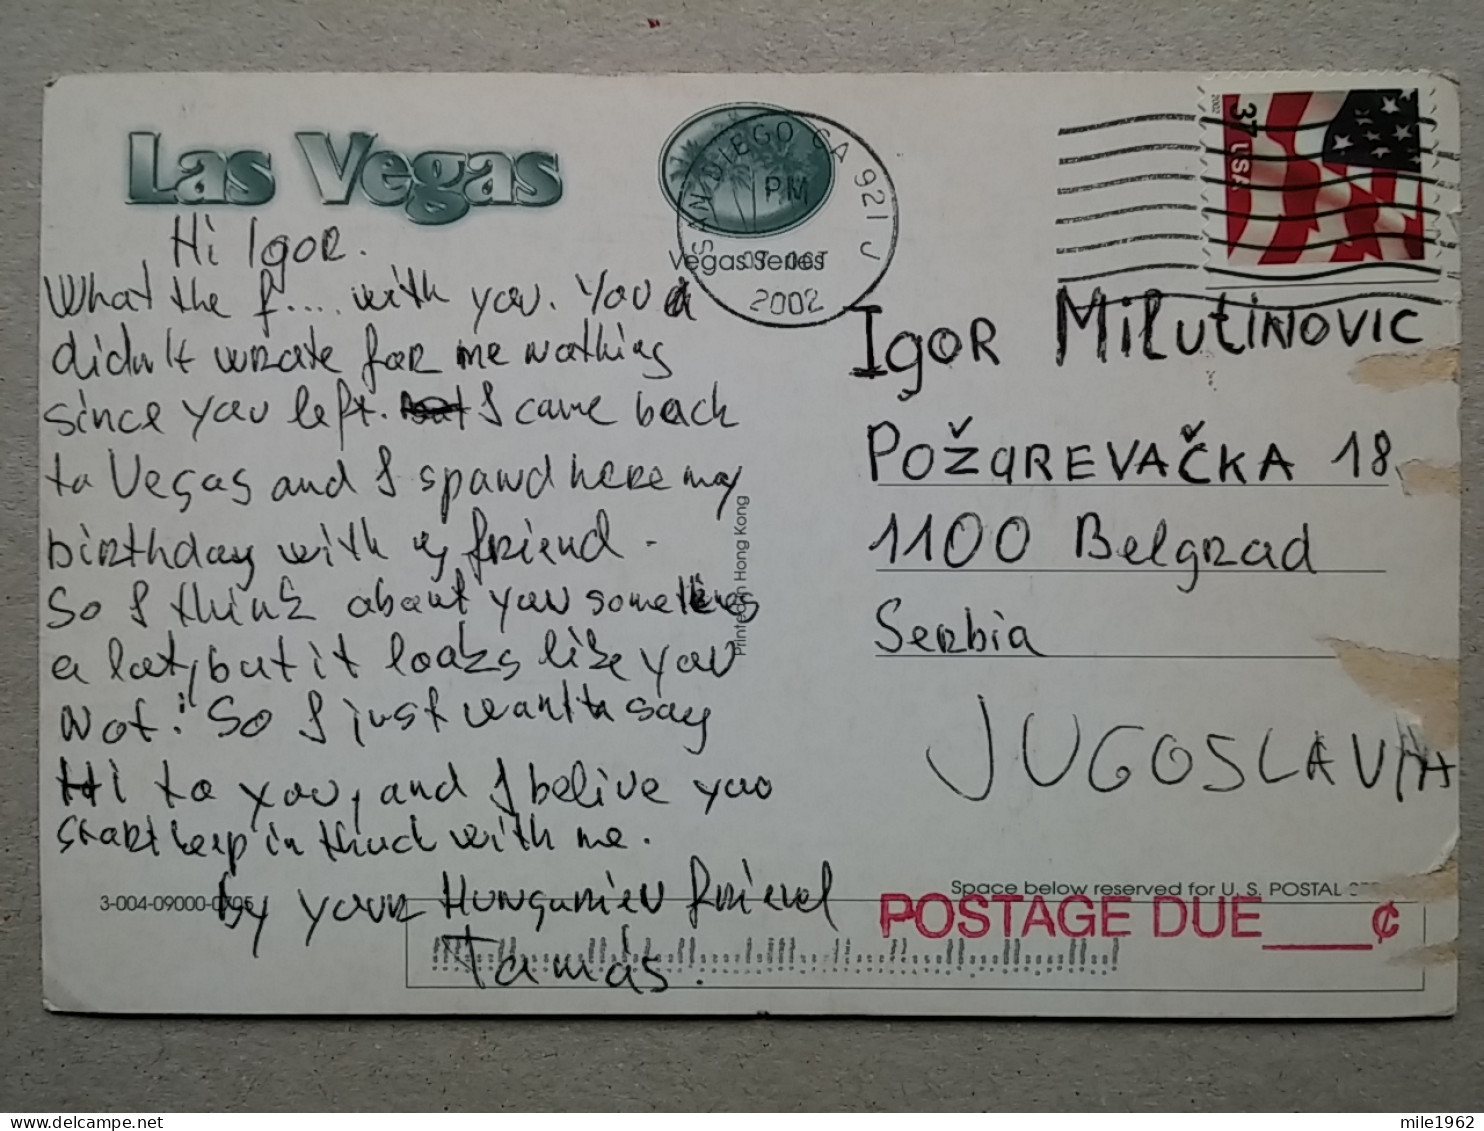 Las Vegas
Hi Igor.
What the f.... with you. You
didn't wrate for me nothing
since you left. I came back
to Vegas and I spawd here my
birthday with my friend.
So I think about you sometimes
a lot, but it looks like you
not. So I just want to say
Hi to you, and I belive you
start keep in thuch with me.
by your Hungarien friend
Tamás.
3-004-09000-0705
Vegas Series
Printed in Hong Kong
SAN DIEGO CA 921
PM
OCT
2002
2002
37 USA
Igor Milutinovic
Požarevačka 18
1100 Belgrad
Serbia
JUGOSLAVIA
Space below reserved for U.S. POSTAL
POSTAGE DUE____¢
mile1962